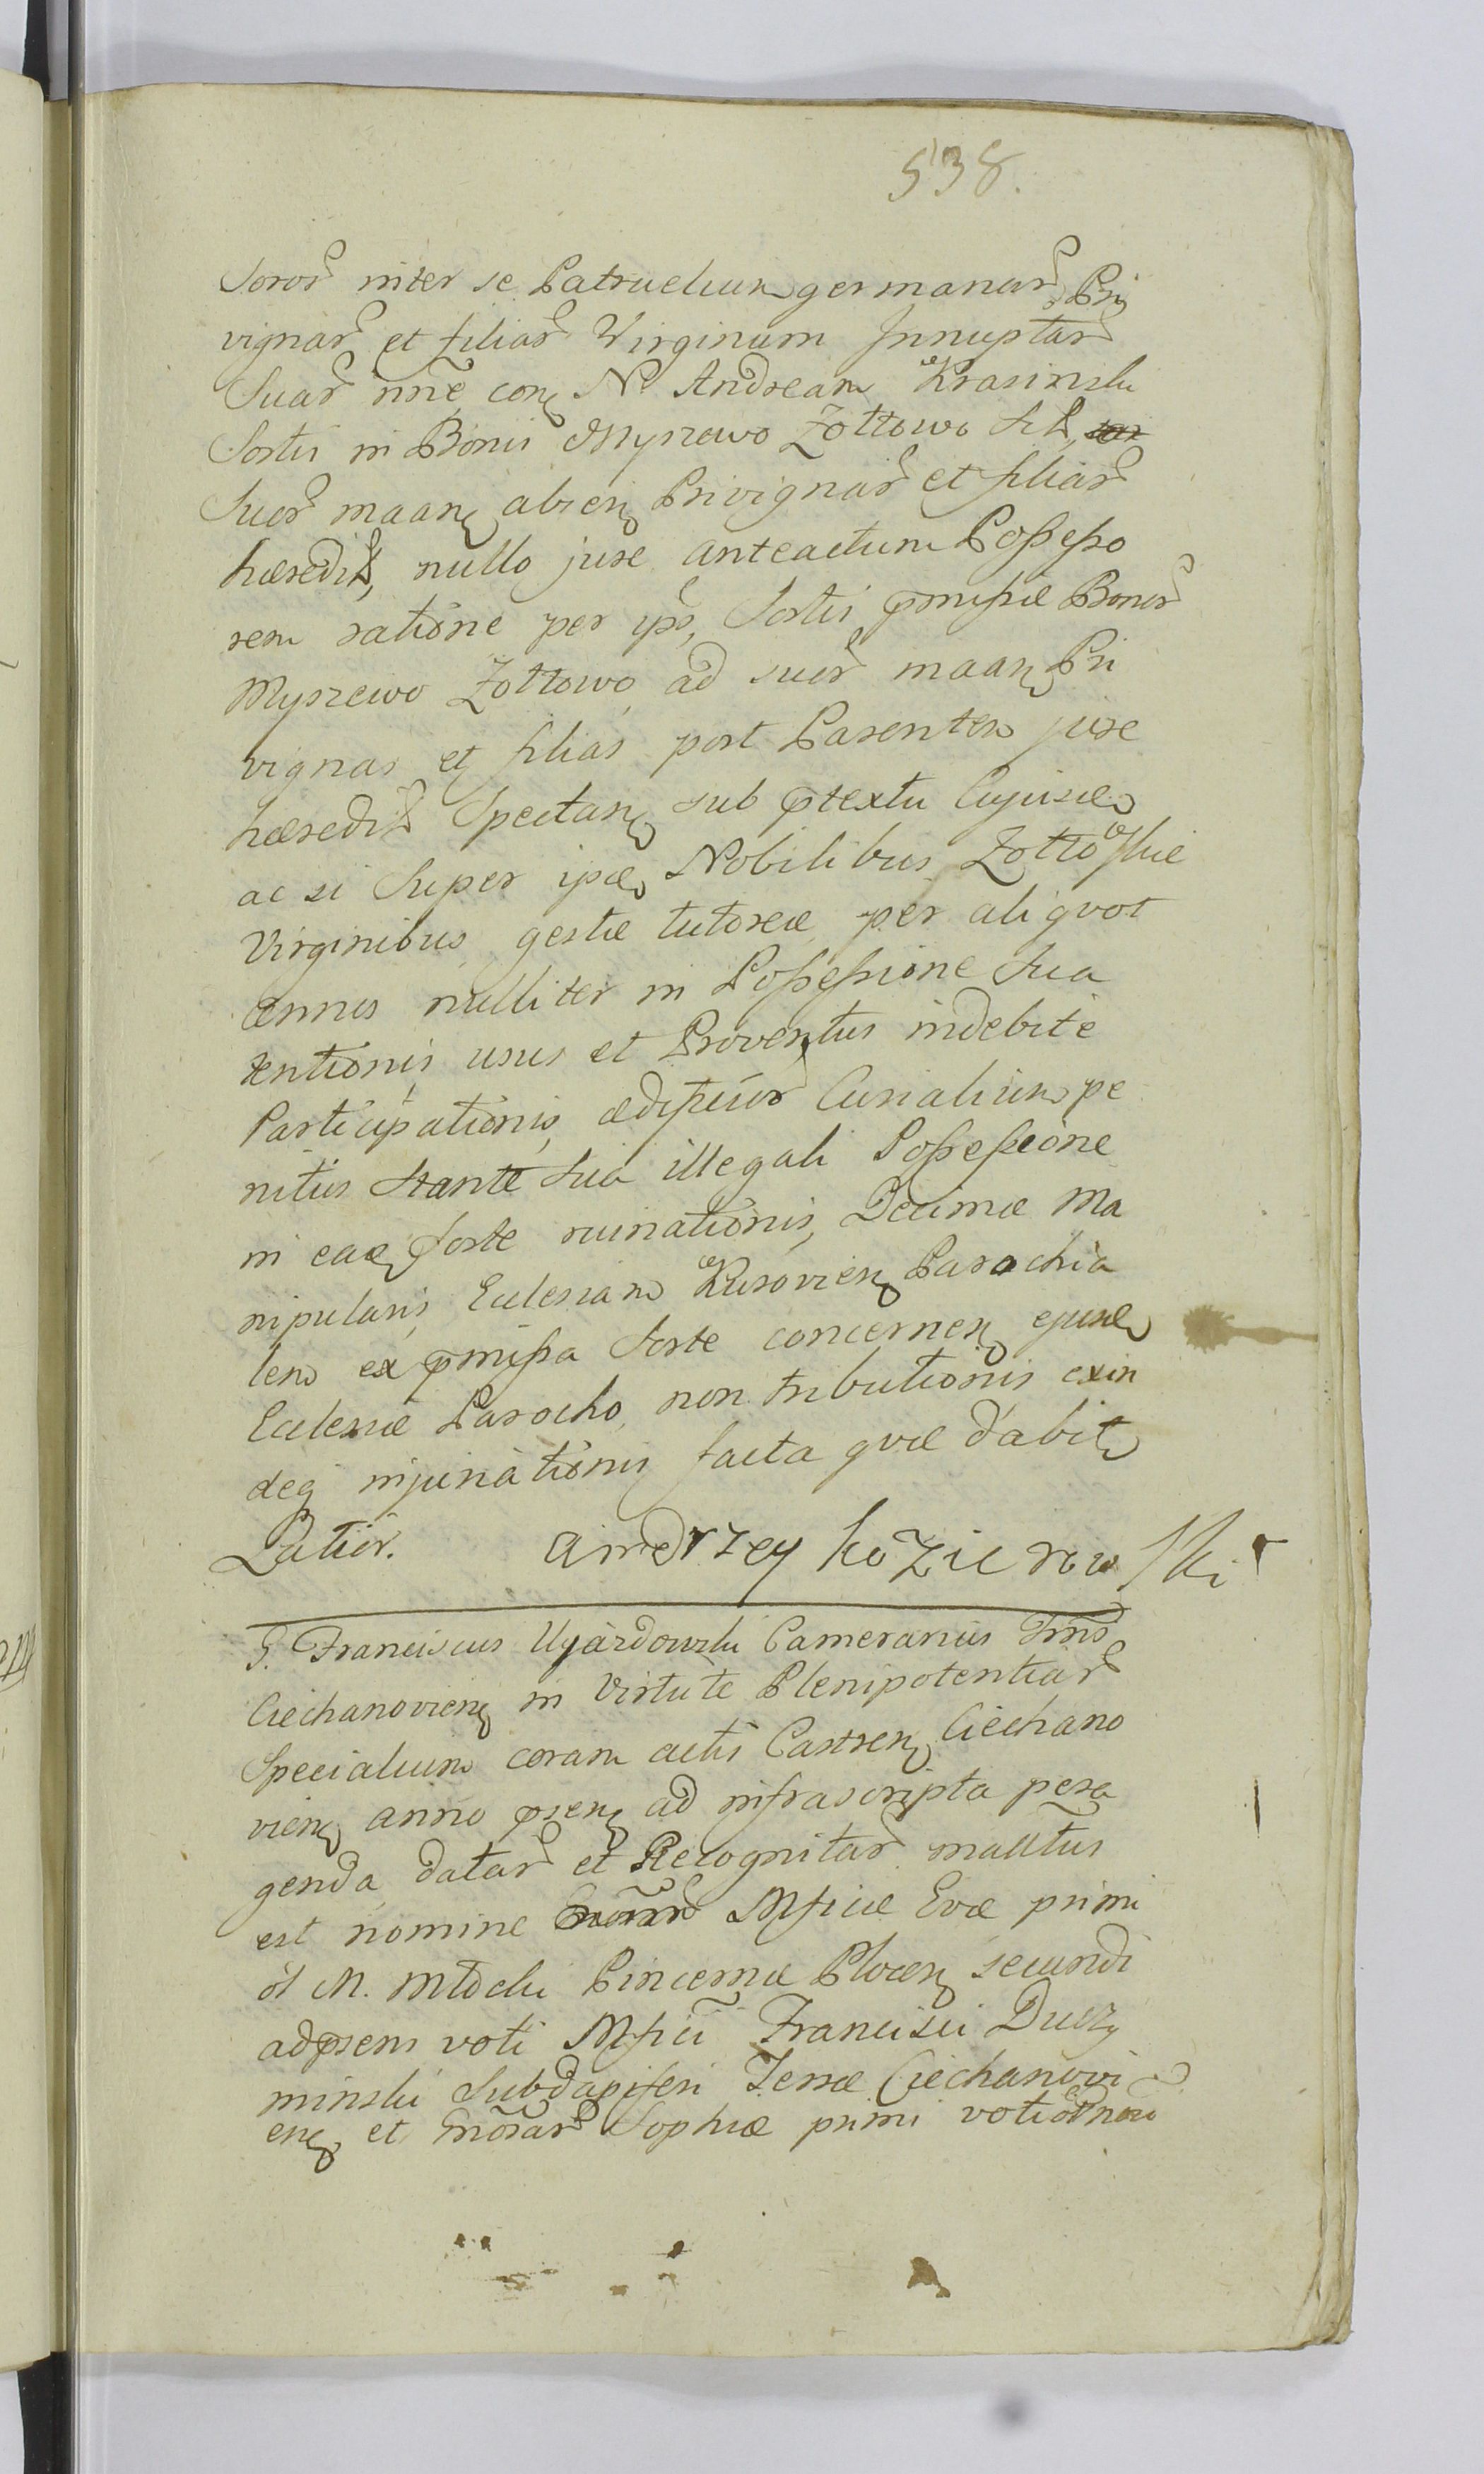 538.
Soror inter se Patruelium germanar Pri
vignar et filiar Virginum Innuptar
Suar nne con N. Andream Krasinski
Sortis in Bonis Myszewo Zołtowo
Suor maan abien Privignar et filiar
hæredit, nullo jure anteactum Poſseſso
rem ratione per ips, Sortis pmiſsæ Bonor
Myszewo Zołtowo ad suor maan Pri
vignas et filias post Parentem jure
hæredit Spectan sub ptextu Cujusd
ac si Super ips Nobilibus Zołtowskie
Virginibus gestæ tutoreæ per aliqvot
annos nulliter in Poſseſsione Sua
tentionis usus et Proventus indebite
Participationis, ædificior Curialium pe
nitus Stante Sua illegali Poſseſsione
in ead Sorte ruinationis, Decimæ Ma
nipularis Ecclesiam Kurovien Parochia
lem ex pmiſsa Sorte concernen ejusd
Ecclesiæ Parocho non tributionis exin
deq injuriationis facta qvæ dabit
Latior. andrzey kozierowski
G. Franciscus Ujazdowski Camerarius Trrs
Ciechanovien in Virtute Plenipotentiar
Specialium coram actis Castren Ciechano
vien anno psen ad infrascripta pera
genda datar et Recognitar
est nomine Mficæ Evæ primi
ol M. Młocki Pincernæ Plocen secundi
adpsens voti Mfici Francisci Duczy
minski Subdapiferi Terræ Ciechanovi
en et Gnosar Sophiæ primi voti